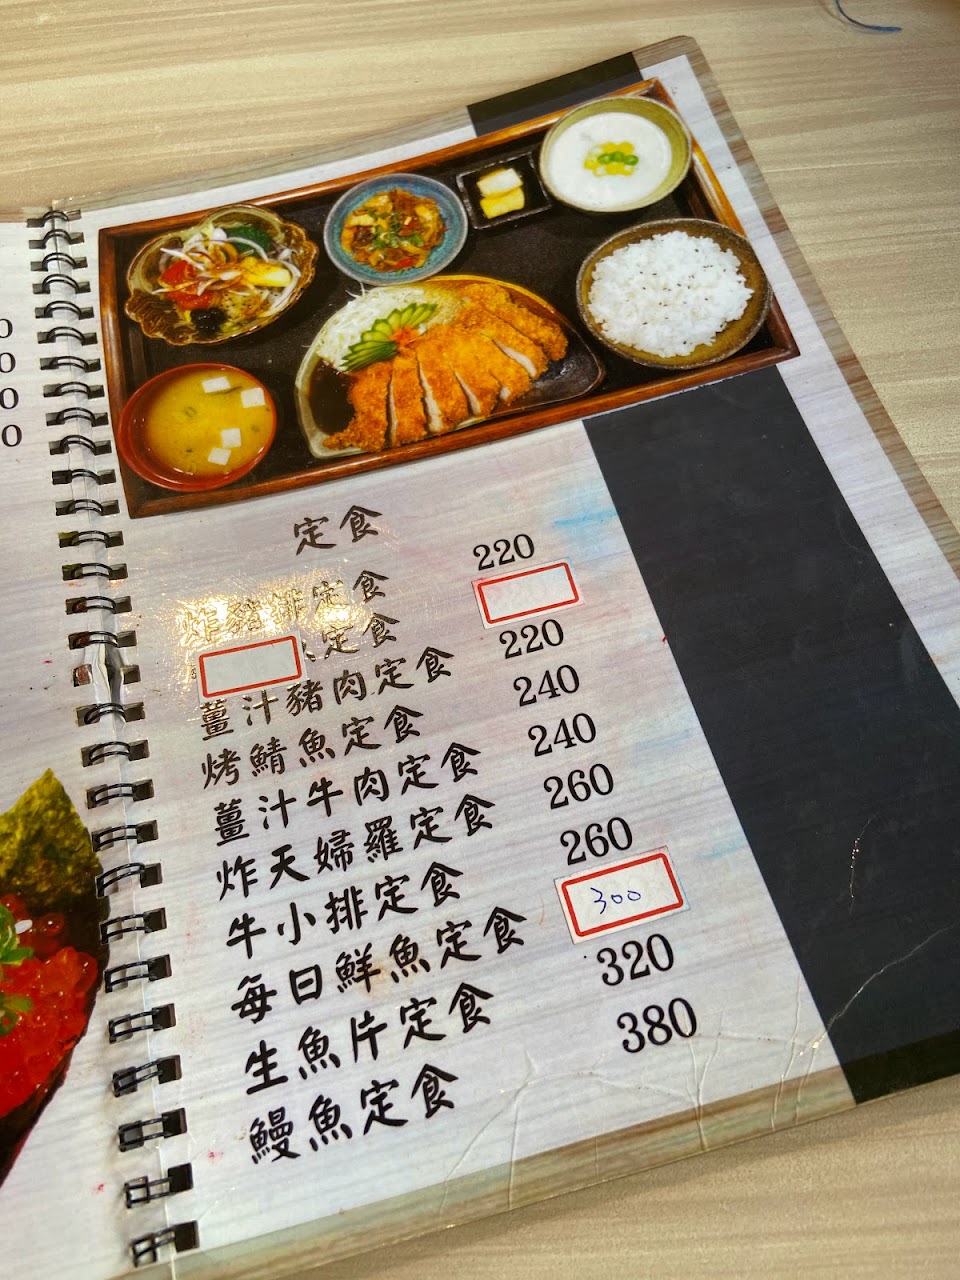 0
0
0
0
定食
炸豬排定食 220
定食
薑汁豬肉定食 220
烤鯖魚定食 240
薑汁牛肉定食 240
炸天婦羅定食 260
牛小排定食 260
每日鮮魚定食 300
生魚片定食 320
鰻魚定食 380